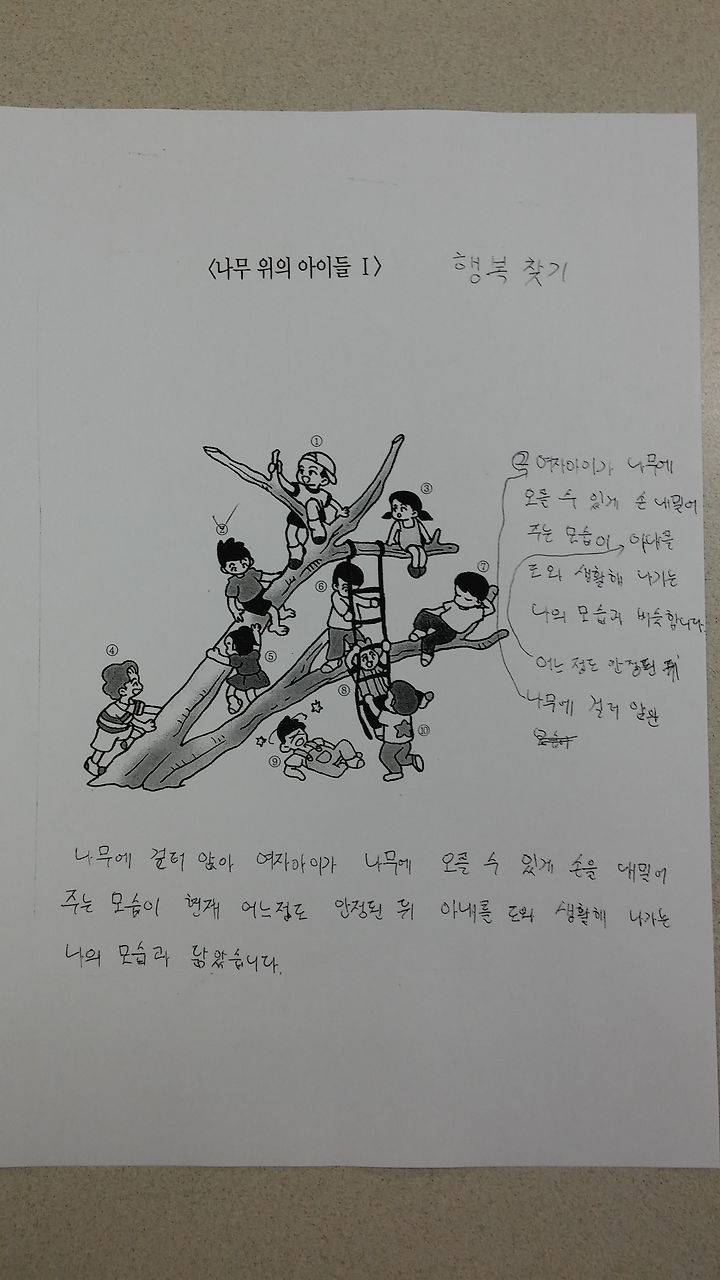 <나무 위의 아이들 Ⅰ> 행복 찾기
①
③
②
⑦
⑥
④
⑤
⑧
⑩
⑨
여자아이가 나무에
오를 수 있게 손 내밀어
주는 모습이 아내를
도와 생활해 나가는
나의 모습과 비슷합니다.
어느 정도 안정된 뒤
나무에 걸터 앉은
나무에 걸터 앉아 여자아이가 나무에 오를 수 있게 손을 내밀어
주는 모습이 현재 어느정도 안정된 뒤 아내를 도와 생활해 나가는
나의 모습과 닮았습니다.